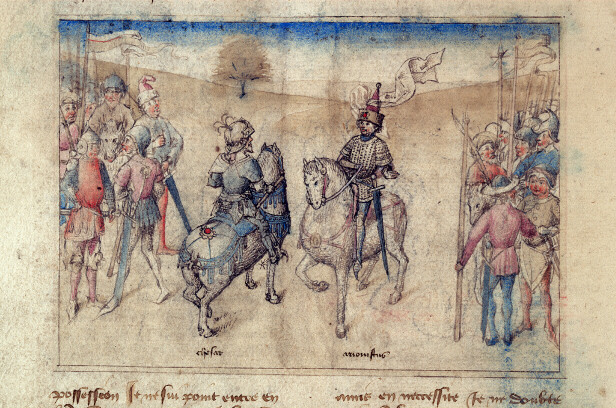 chesar
ariovistus
possession Je ne sui point entre en
amis en necessite Je ne doubte